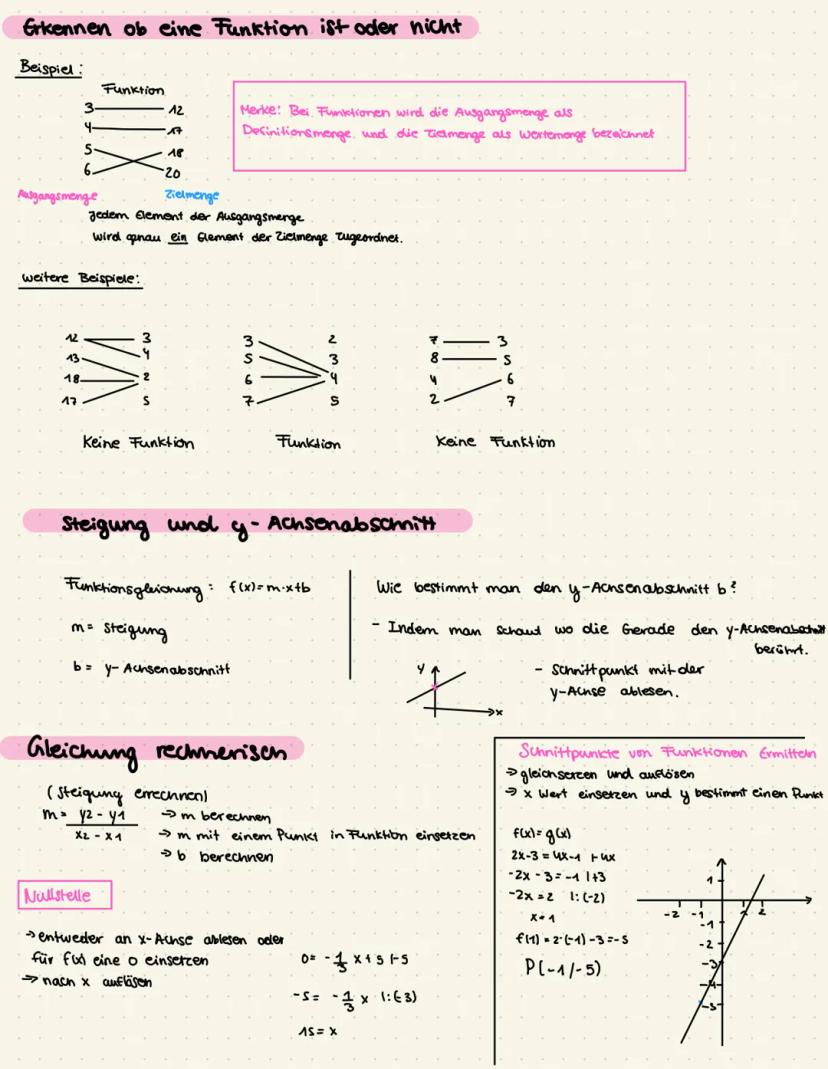 Erkennen ob eine Funktion ist oder nicht
Beispiel:
Funktion
3 12
4 17
5 18
6 20
Ausgangsmenge Zielmenge
Jedem Element der Ausgangsmenge
wird genau ein Element der Zielmenge zugeordnet.
Merke: Bei Funktionen wird die Ausgangsmenge als
Definitionsmenge und die Zielmenge als Wertemenge bezeichnet
weitere Beispiele:
12 3
13 4
18 2
17 5
Keine Funktion
3 2
5 3
6 4
7 5
Funktion
7 3
8 5
4 6
2 7
Keine Funktion
Steigung und y-Achsenabschnitt
Funktionsgleichung: f(x)=m·x+b
m= Steigung
b= y-Achsenabschnitt
Wie bestimmt man den y-Achsenabschnitt b?
- Indem man schaut wo die Gerade den y-Achsenabschnitt
berührt.
y
x
- Schnittpunkt mit der
y-Achse ablesen.
Gleichung rechnerisch
(Steigung errechnen)
m= y2-y1
x2-x1
→ m berechnen
→ m mit einem Punkt in Funktion einsetzen
→ b berechnen
Nullstelle
→ entweder an x-Achse ablesen oder
für f(x) eine 0 einsetzen
→ nach x auflösen
-5= -1/3 x |:(-3)
15=x
Schnittpunkte von Funktionen Ermitteln
→ gleichsetzen und auflösen
→ x Wert einsetzen und y bestimmt einen Punkt
f(x)=g(x)
2x-3=4x-1 |-4x
-2x-3=-1 |+3
-2x=2 |:(-2)
x=-1
f(1)=2·(-1)-3=-5
P(-1/-5)
1
-2 -1 1 2
-1
-2
-3
-4
-5